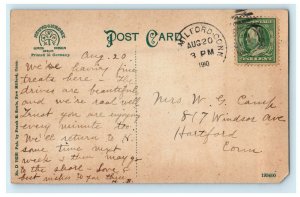 POST CARD
Printed in Germany
MILFORD, CONN.
AUG 20
8 PM
1910
Aug. 20
We're having fine
treats here - The
drives are beautiful
and we're real well
Trust you are enjoying
every minute too.
We'll return to N.
some time next
week & then may go
to the shore - Love &
best wishes to you three
Mrs. W. G. Camp
817 Windsor Ave
Hartford
Conn